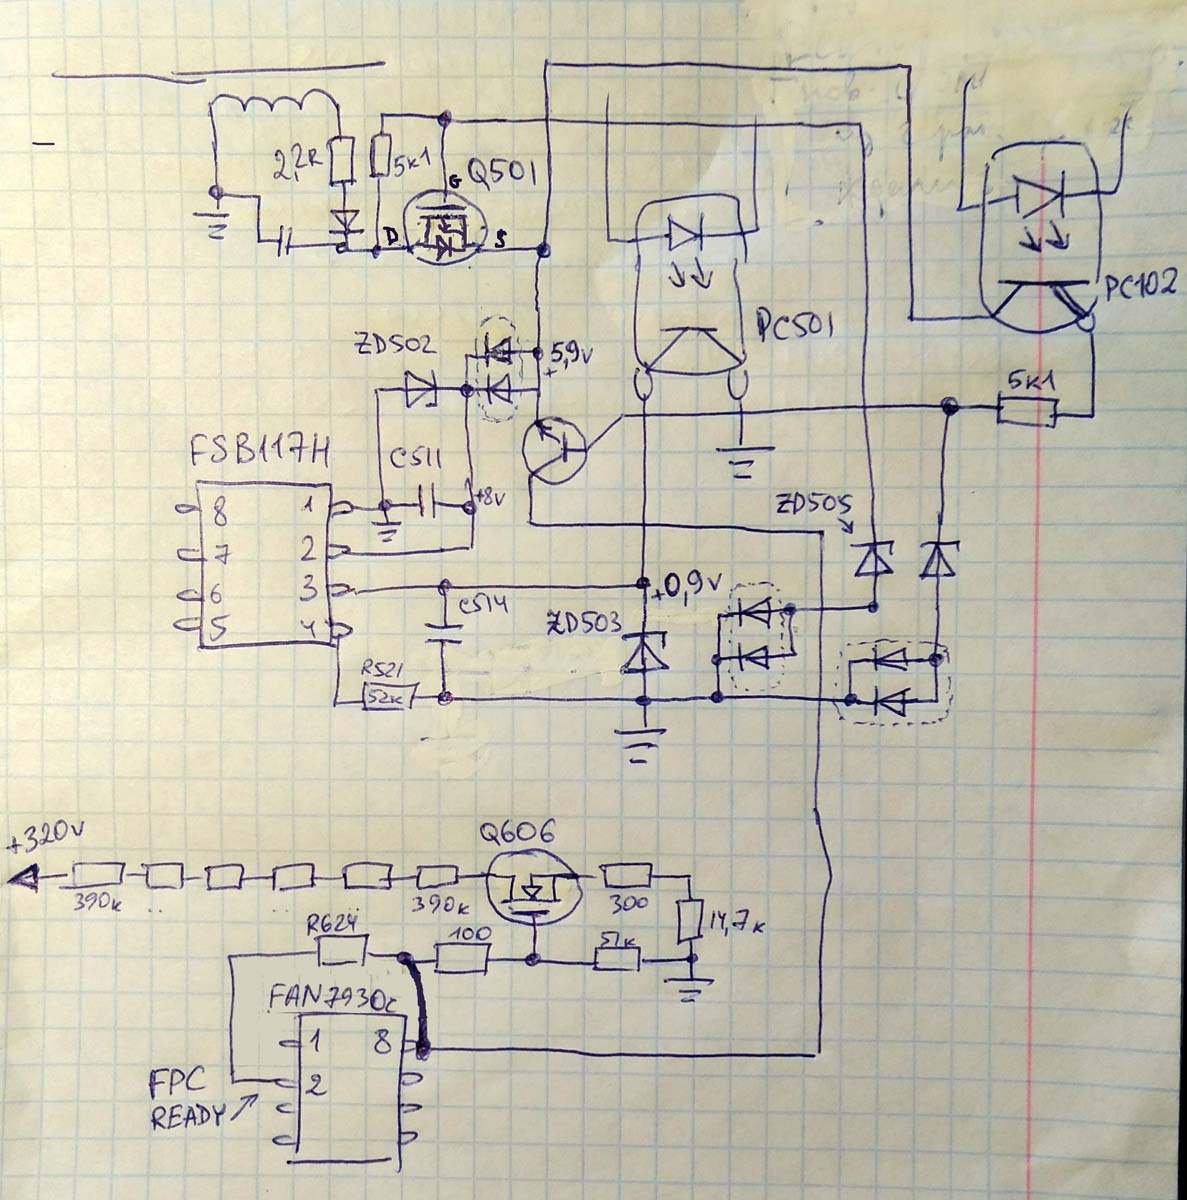 2,2R
5к1
G
Q501
D
S
PC102
PC501
ZD502
+5,9v
5к1
FSB117H
C511
+8v
ZD505
8 1
7 2
6 3
5 4
+0,9v
C514
ZD503
R521
52к
+320v
Q606
390к
390к
300
14,7к
R624
100
51к
FAN7930c
1 8
2
FPC
READY